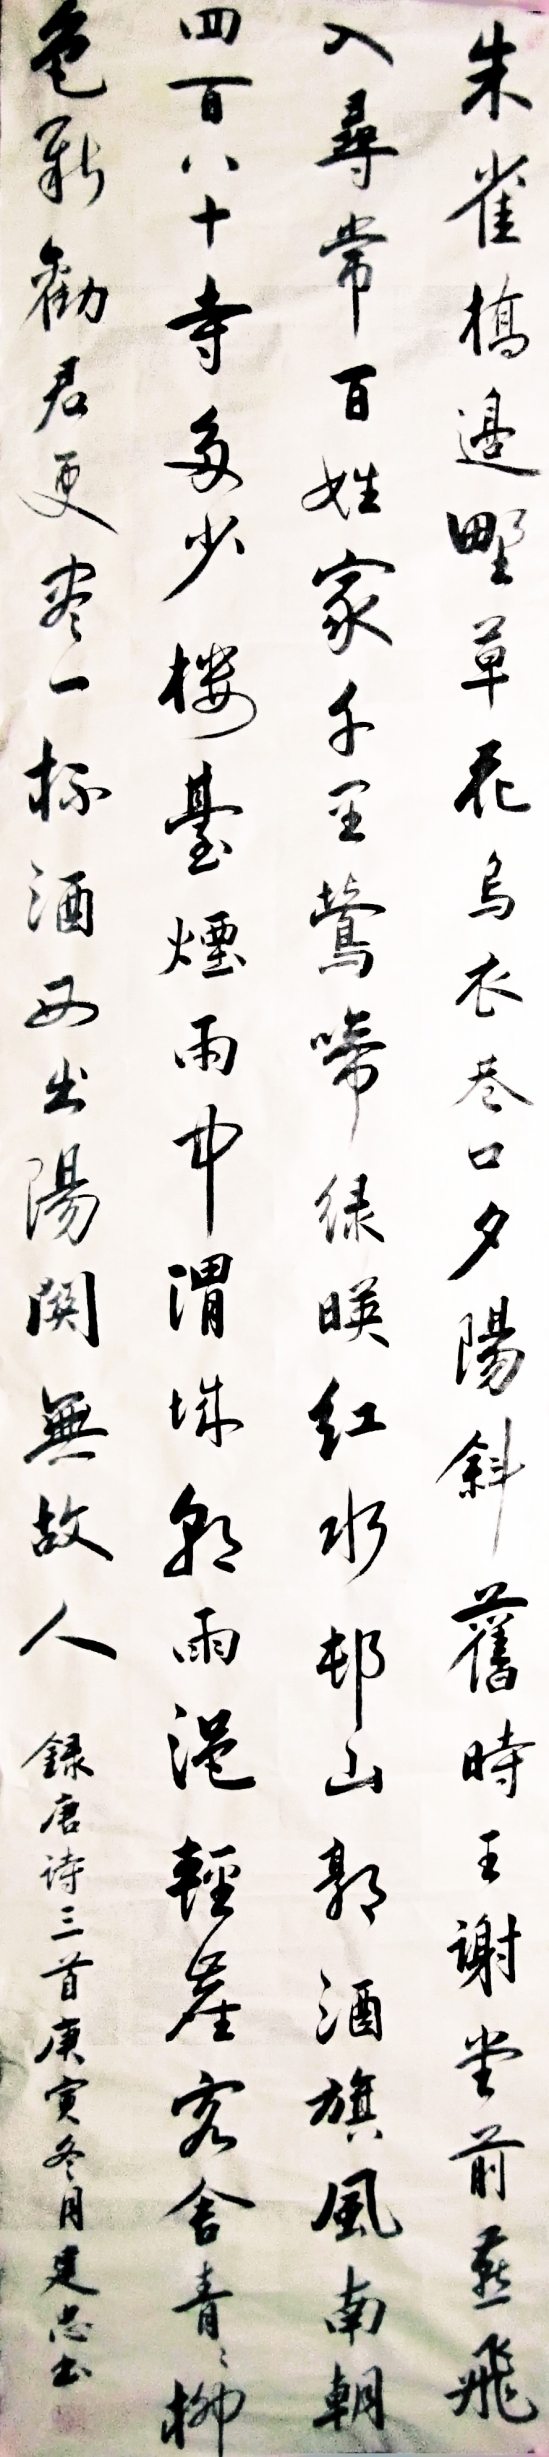 朱雀橋邊野草花烏衣巷口夕陽斜舊時王謝堂前燕飛
入尋常百姓家千里鶯啼绿暎红水邨山郭酒旗風南朝
四百八十寺多少楼臺煙雨中渭城朝雨浥輕塵客舍青〻柳
色新勸君更盡一杯酒西出陽関無故人
録唐诗三首庚寅冬月建忠书